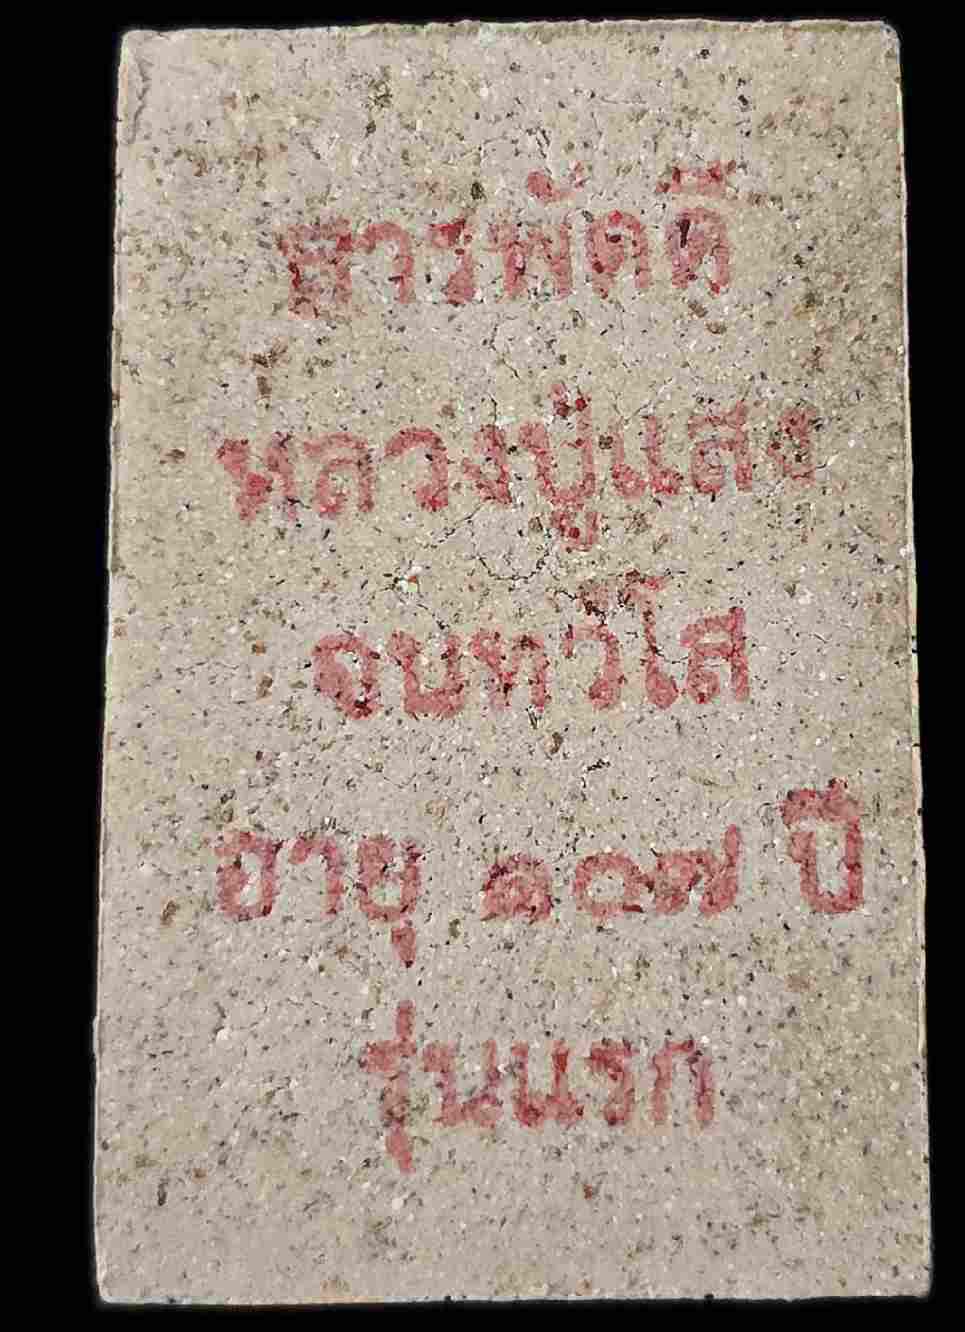 สารพัดดี
หลวงปู่แสง
จนฺทวํโส
อายุ ๑๐๗ ปี
รุ่นแรก